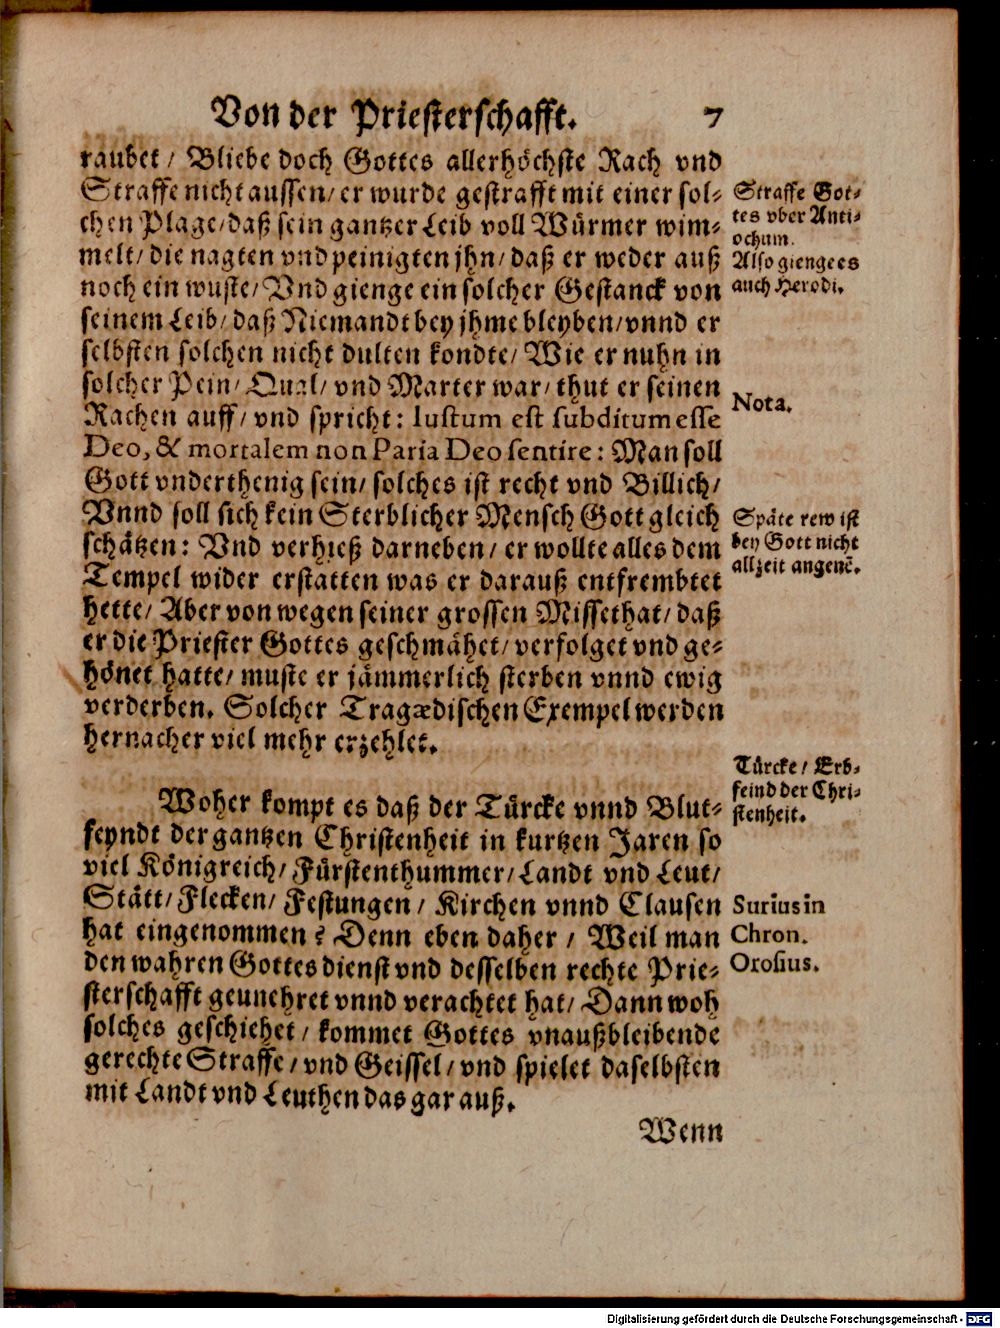 Von der Priesterschafft. 7
raubet / Bliebe doch Gottes allerhöchste Rach vnd
Straffe nicht aussen / er wurde gestrafft mit einer sol-
chen Plage / daß sein gantzer Leib voll Würmer wim-
melt / die nagten vnd peinigten jhn / daß er weder auß
noch ein wuste / Vnd gienge ein solcher Gestanck von
seinem Leib / daß Niemandt bey jhme bleyben / vnnd er
selbsten solchen nicht dulten kondte / Wie er nuhn in
solcher Pein / Qual / vnd Marter war / thut er seinen
Rachen auff / vnd spricht: Iustum est subditum esse
Deo, & mortalem non Paria Deo sentire: Man soll
Gott vnderthenig sein / solches ist recht vnd Billich /
Vnnd soll sich kein Sterblicher Mensch Gott gleich
schätzen: Vnd verhieß darneben / er wollte alles dem
Tempel wider erstatten was er darauß entfrembtet
hette / Aber von wegen seiner grossen Missethat / daß
er die Priester Gottes geschmähet / verfolget vnd ge-
hönet hatte / muste er jämmerlich sterben vnnd ewig
verderben. Solcher Tragædischen Exempel werden
hernacher viel mehr erzehlet.
Woher kompt es daß der Türcke vnnd Blut-
feyndt der gantzen Christenheit in kurtzen Jaren so
viel Königreich / Fürstenthummer / Landt vnd Leut /
Stätt / Flecken / Festungen / Kirchen vnnd Clausen
hat eingenommen? Denn eben daher / Weil man
den wahren Gottesdienst vnd desselben rechte Prie-
sterschafft geunehret vnnd verachtet hat / Dann woh
solches geschiehet / kommet Gottes vnaußbleibende
gerechte Straffe / vnd Geissel / vnd spielet daselbsten
mit Landt vnd Leuthen das gar auß.
Wenn
Straffe Got-
tes vber Anti-
ochum.
Also gienge es
auch Herodi.
Nota.
Späte rew ist
bey Gott nicht
allzeit angenē.
Türcke / Erb-
feind der Chri-
stenheit.
Surius in
Chron.
Orosius.
Digitalisierung gefördert durch die Deutsche Forschungsgemeinschaft - DFG